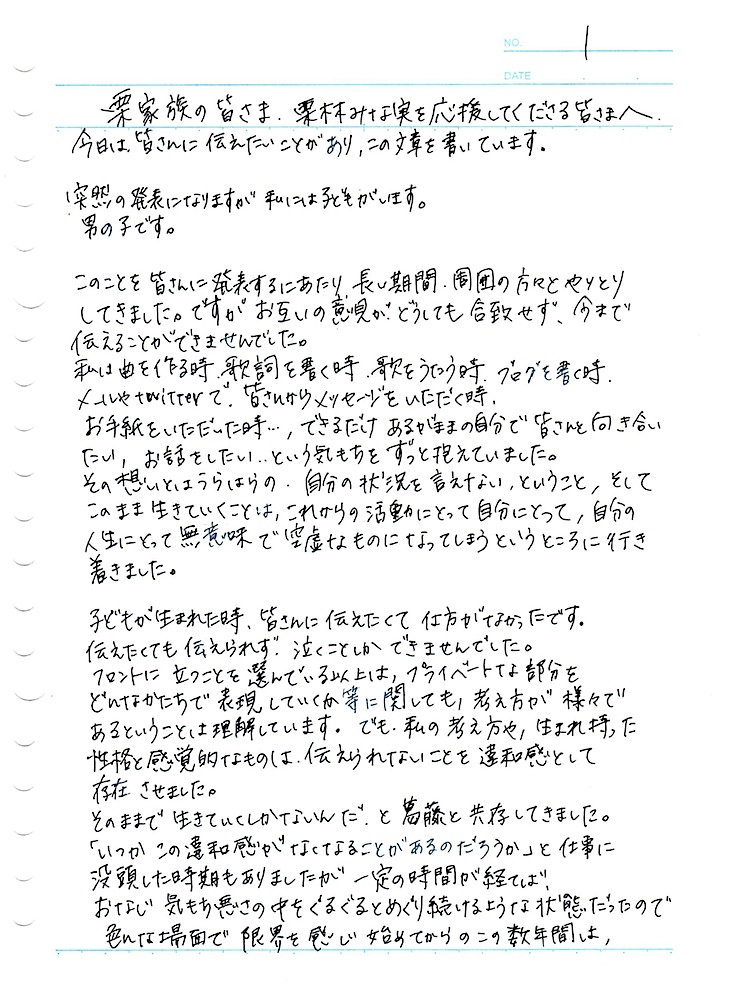 NO. 1
DATE
栗家族の皆さま、栗林みな実を応援してくださる皆さまへ.
今日は、皆さんに伝えたいことがあり、この文章を書いています。
突然の発表になりますが 私には子どもがいます。
男の子です。
このことを皆さんに発表するにあたり、長い期間、周囲の方々とやりとり
してきました。ですが お互いの意見が、どうしても合致せず、今まで
伝えることができませんでした。
私は曲を作る時、歌詞を書く時、歌をうたう時、ブログを書く時、
メールやtwitterで、皆さんからメッセージをいただく時、
お手紙をいただいた時…,できるだけ あるがままの自分で皆さんと向き合い
たい, お話をしたい..という気もちをずっと抱えていました。
その想いとはうらはらの、自分の状況を言えない,ということ, そして
このまま生きていくことは,これからの活動にとって自分にとって,自分の
人生にとって無意味で空虚なものになってしまうというところに行き
着きました。
子どもが生まれた時、皆さんに伝えたくて仕方がなかったです。
伝えたくても伝えられず、泣くことしかできませんでした。
フロントに立つことを選んでいる以上は,プライベートな部分を
どんなかたちで表現していくか等に関しても,考え方が様々で
あるということは理解しています。でも、私の考え方や,生まれ持った
性格と感覚的なものは、伝えられないことを違和感として
存在させました。
そのままで生きていくしかないんだ、と葛藤と共存してきました。
「いつかこの違和感がなくなることがあるのだろうか」と仕事に
没頭した時期もありましたが 一定の時間が経てば、
おなじ気もち悪さの中をぐるぐるとめぐり続けるような状態だったので
色んな場面で限界を感じ始めてからのこの数年間は,